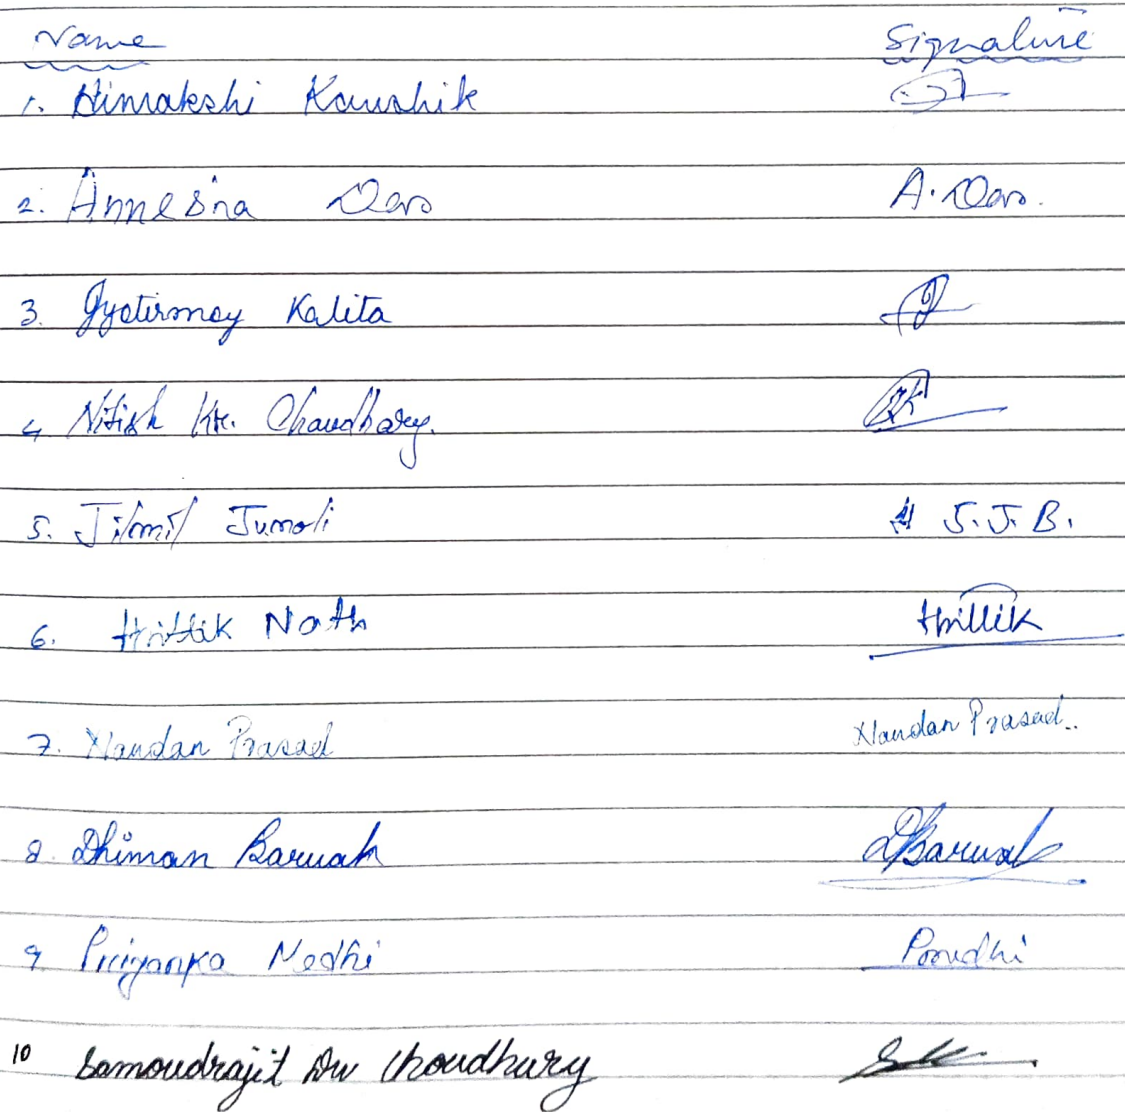 Name Signature
1. Himakshi Kaushik
2. Annesha Das A. Das.
3. Jyotirmoy Kalita
4 Nitish Kr. Chaudhary.
5. Jilmil Jumoli J. J. B.
6. Hrittik Nath Hrittik
7. Nandan Prasad Nandan Prasad..
8. Dhiman Baruah DBaruah
9 Priyanka Medhi
10 Samoudrajit Choudhury